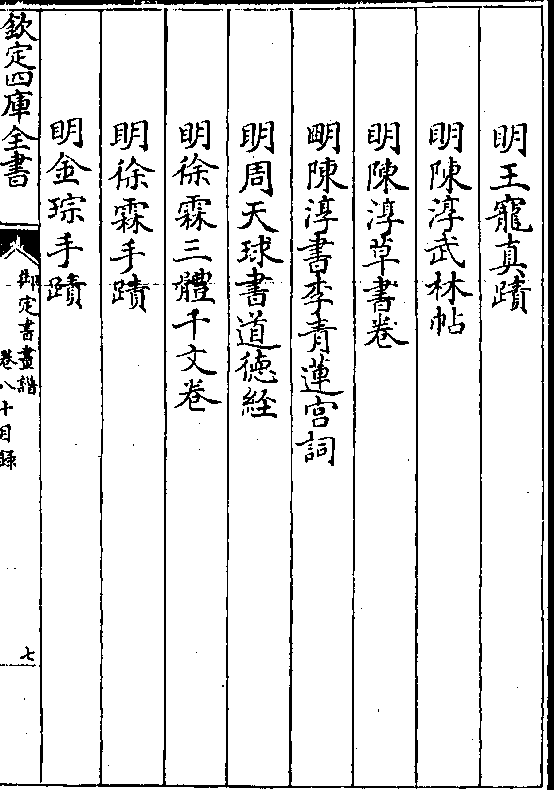 明王寵真蹟
明陳淳武林帖
明陳淳草書卷
明陳淳書李青蓮宫詞
明周天球書道德經
明徐霖三體千文卷
明徐霖手蹟
明金琮手蹟
欽定四庫全書
御定書畫譜
卷八十目録
七